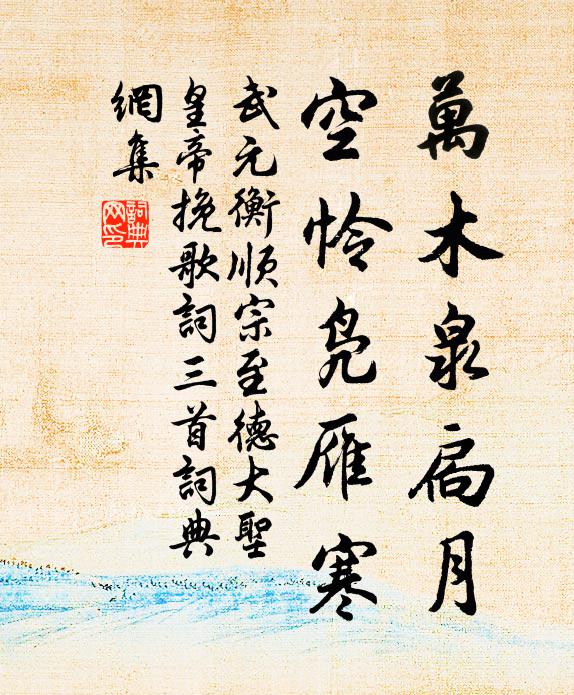 萬木泉扃月
空怜凫雁寒
武元衡顺宗至德大聖
皇帝挽歌詞三首詞典
網集
詞典網印